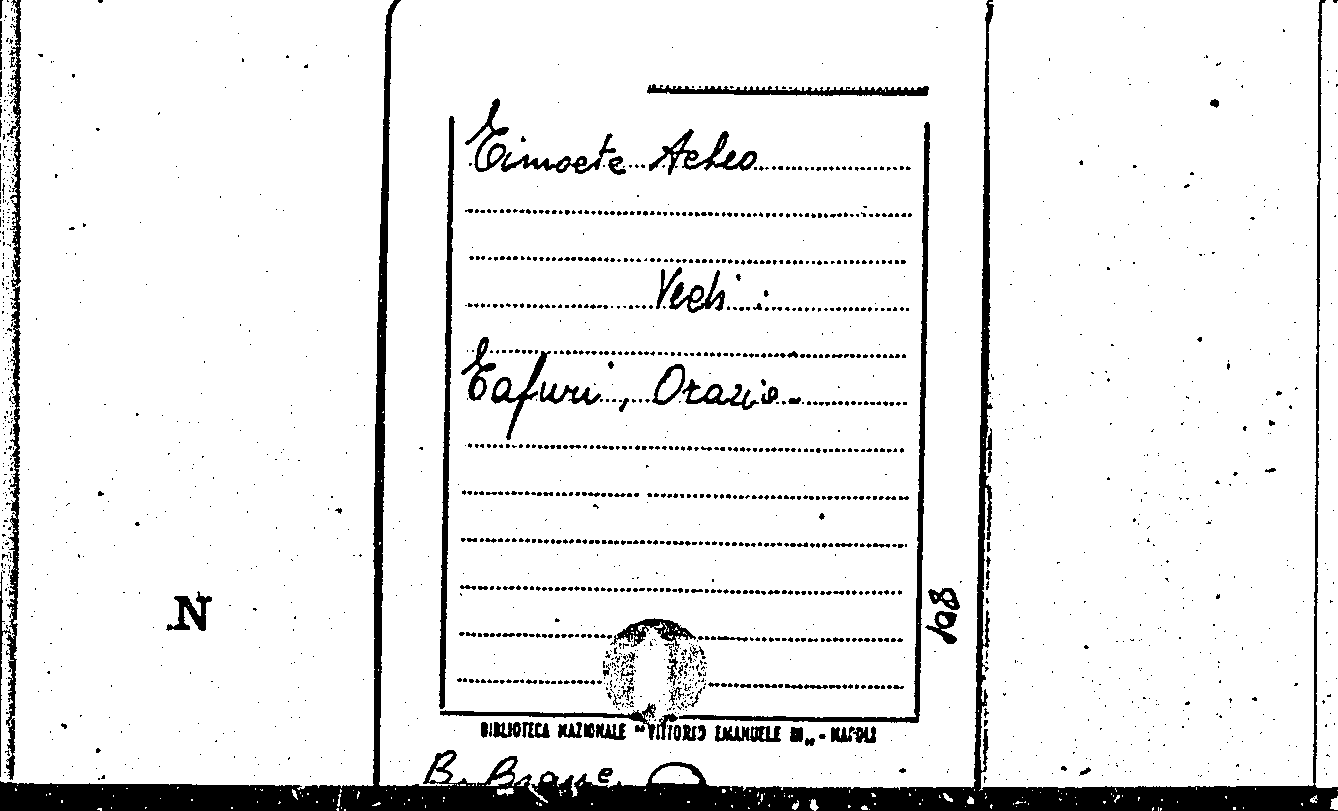 Timoete Acheo
Vedi :
Tafuri, Orazio.
N
108
BIBLIOTECA NAZIONALE "VITTORIO EMANUELE III„ - NAPOLI
B.